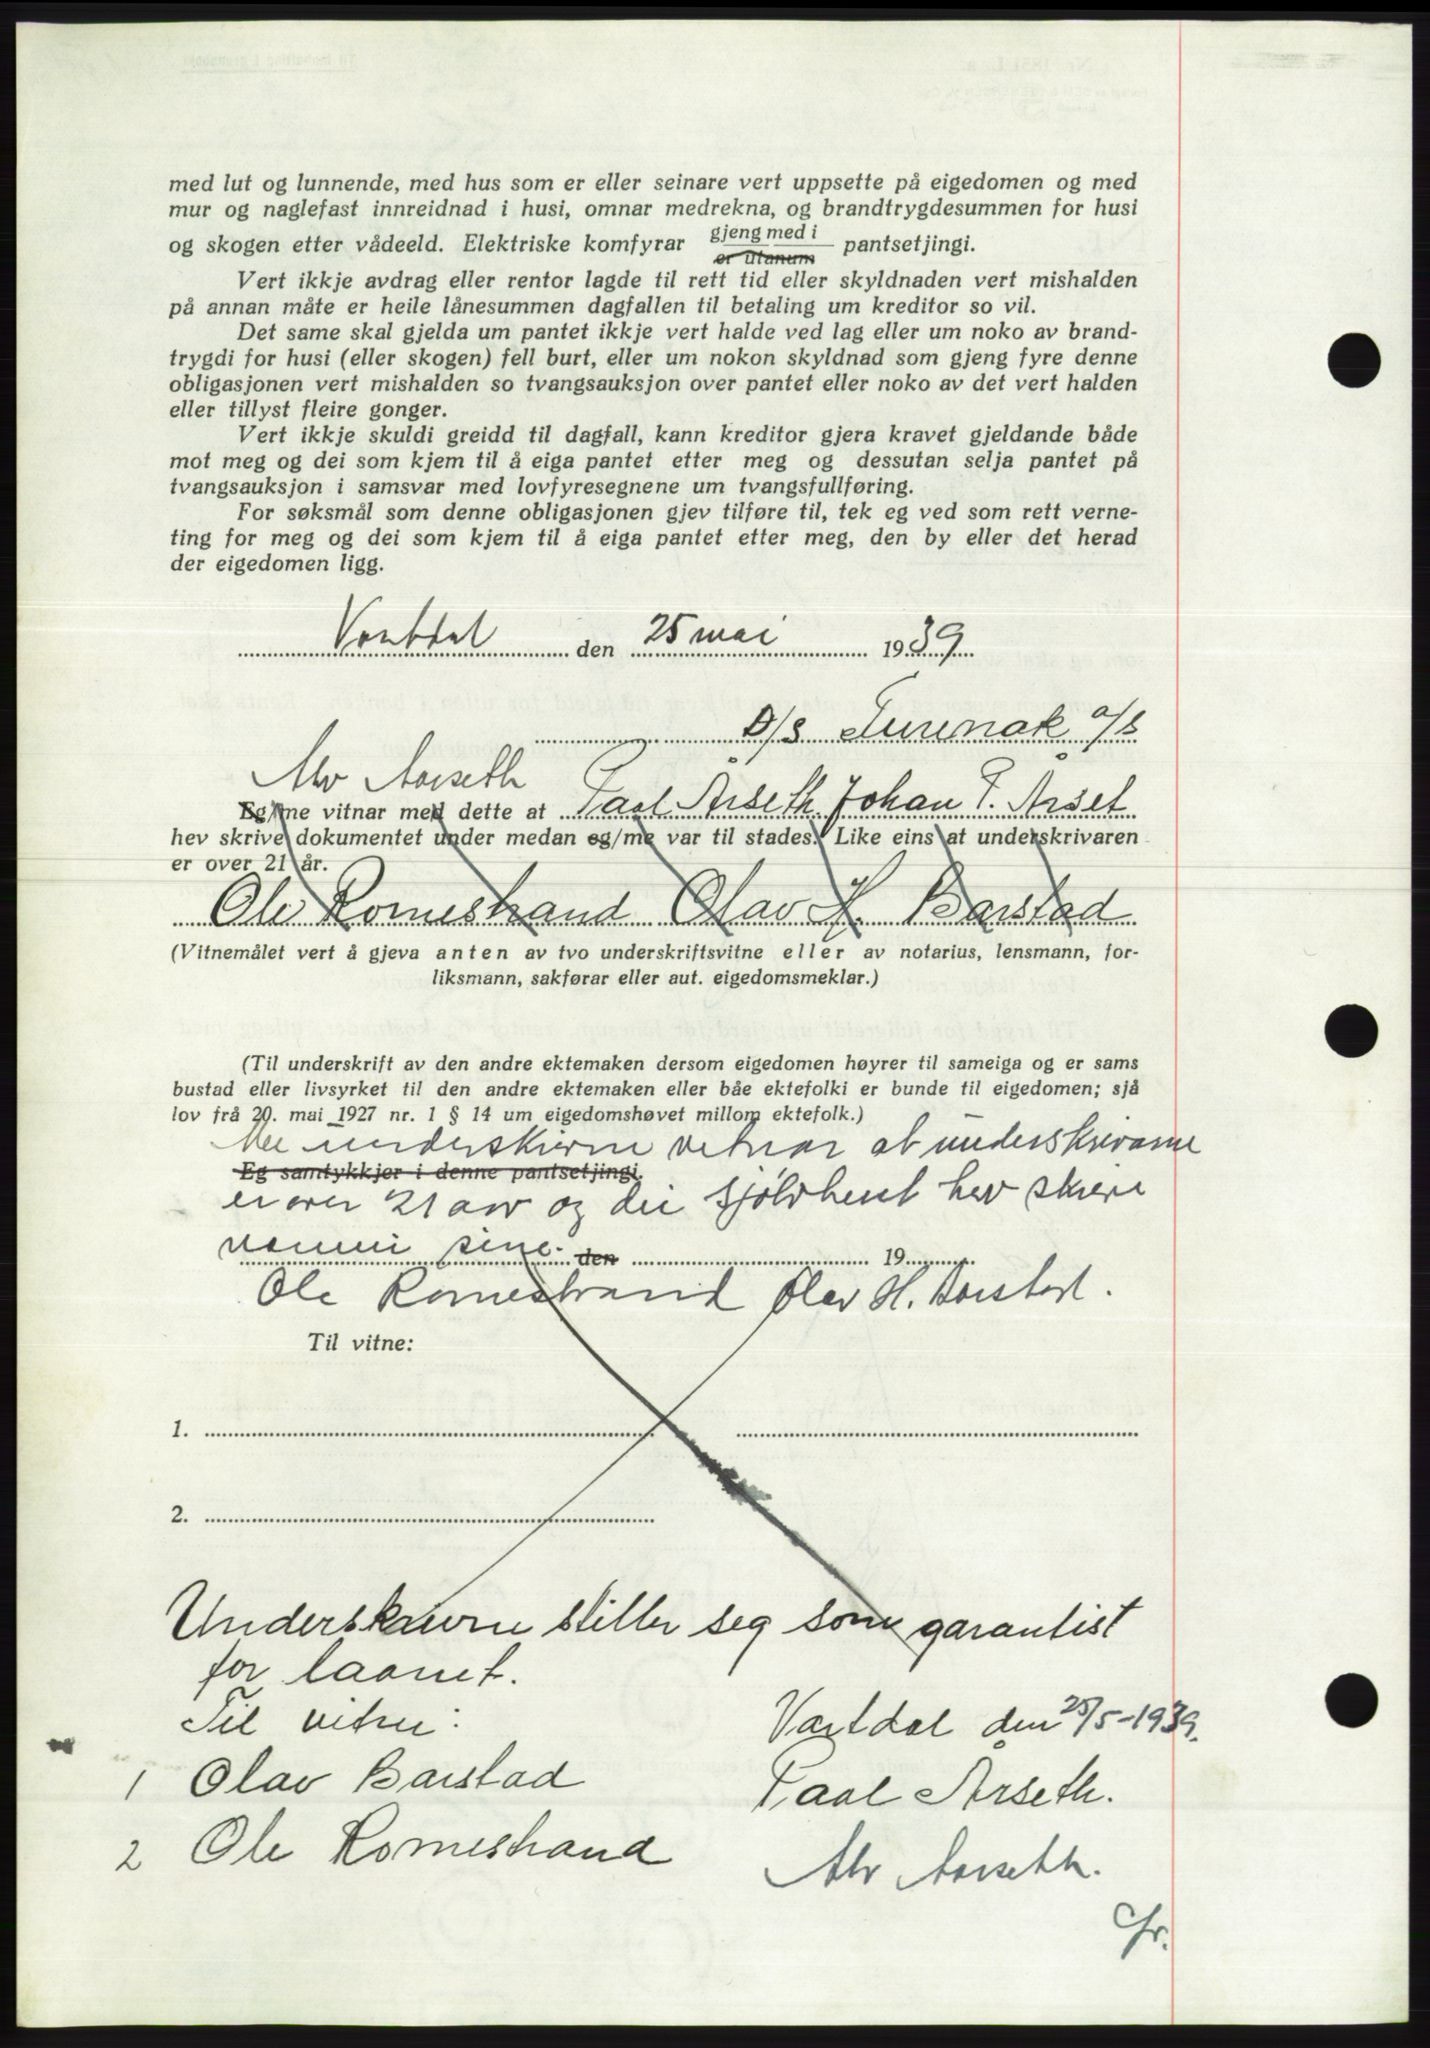 med lut og lunnende, med hus som er eller seinare vert uppsette på eigedomen og med
mur og naglefast innreidnad i husi, omnar medrekna, og brandtrygdesummen for husi
og skogen etter vådeeld. Elektriske komfyrar gjeng med i / er utanum pantsetjingi.
Vert ikkje avdrag eller rentor lagde til rett tid eller skyldnaden vert mishalden
på annan måte er heile lånesummen dagfallen til betaling um kreditor so vil.
Det same skal gjelda um pantet ikkje vert halde ved lag eller um noko av brand-
trygdi for husi (eller skogen) fell burt, eller um nokon skyldnad som gjeng fyre denne
obligasjonen vert mishalden so tvangsauksjon over pantet eller noko av det vert halden
eller tillyst fleire gonger.
Vert ikkje skuldi greidd til dagfall, kann kreditor gjera kravet gjeldande både
mot meg og dei som kjem til å eiga pantet etter meg og dessutan selja pantet på
tvangsauksjon i samsvar med lovfyresegnene um tvangsfullføring.
For søksmål som denne obligasjonen gjev tilføre til, tek eg ved som rett verne-
ting for meg og dei som kjem til å eiga pantet etter meg, den by eller det herad
der eigedomen ligg.
Vartdal den 25 mai 1939
D/S Turenok a/s
Alv Aarseth
Eg/me vitnar med dette at Paal Årseth Johan P. Årset
hev skrive dokumentet under medan eg/me var til stades. Like eins at underskrivaren
er over 21 år.
Ole Romestrand Olav H. Barstad
(Vitnemålet vert å gjeva anten av tvo underskriftsvitne eller av notarius, lensmann, for-
liksmann, sakførar eller aut. eigedomsmeklar.)
(Til underskrift av den andre ektemaken dersom eigedomen høyrer til sameiga og er sams
bustad eller livsyrket til den andre ektemaken eller båe ektefolki er bunde til eigedomen; sjå
lov frå 20. mai 1927 nr. 1 § 14 um eigedomshøvet millom ektefolk.)
Me underskrivne vitnar at underskrivarne
Eg samtykkjer i denne pantsetjingi.
er over 21 aar og dei sjølv hev skrive
sine. den 19
Ole Romestrand Olav H. Barstad.
Til vitne:
1.
2.
Underskrivne stiller seg som garantist
for laanet.
Til vitne:
Vartdal den 25/5-1939.
1 Olav Barstad
Paal Årseth.
2 Ole Romestrand
Alv Aarseth.